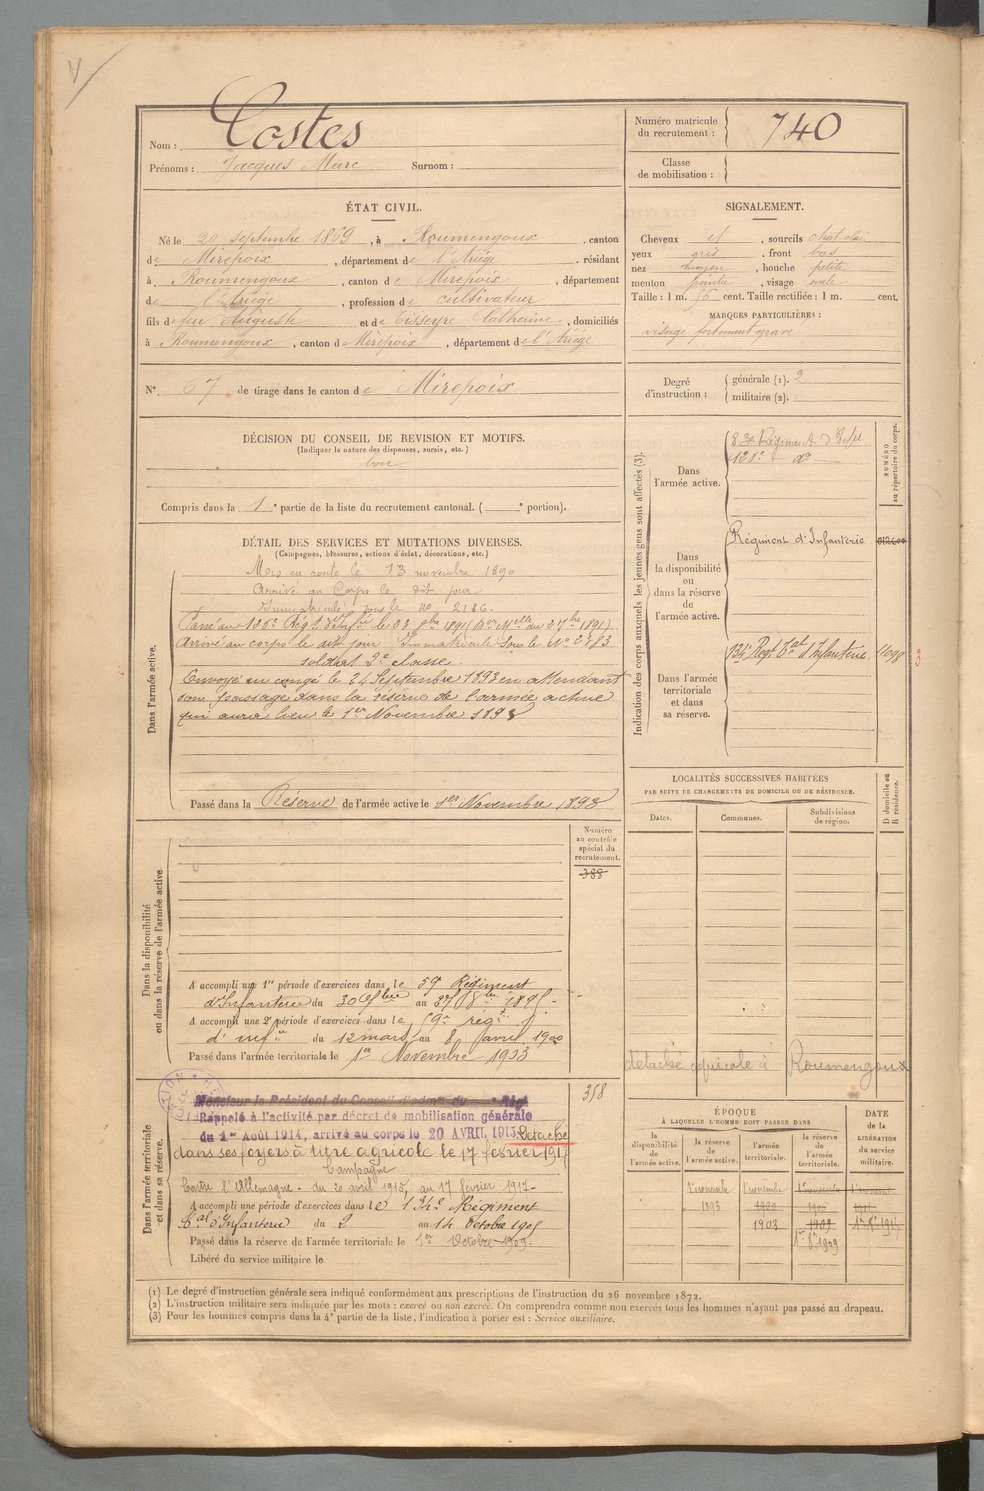 V
Nom : Costes
Prénoms : Jacques Marc Surnom :
Numéro matricule du recrutement : 740
Classe de mobilisation :
ÉTAT CIVIL.
Né le 20 septembre 1869, à Roumengoux, canton
de Mirepoix, département de l'Ariège, résidant
à Roumengoux, canton de Mirepoix, département
de l'Ariège, profession de cultivateur
fils de feu Auguste et de Tisseyre Catherine, domiciliés
à Roumengoux, canton d Mirepoix, département de l'Ariège
SIGNALEMENT.
Cheveux et, sourcils chat. clai.
yeux gris, front bas
nez moyen, bouche petite
menton pointu, visage ovale
Taille : 1 m. 56 cent. Taille rectifiée : 1 m. cent.
MARQUES PARTICULIÈRES :
visage fortement gravé
N° 67 de tirage dans le canton de Mirepoix
Degré d'instruction : générale (1). 2
militaire (2).
DÉCISION DU CONSEIL DE REVISION ET MOTIFS.
(Indiquer la nature des dispenses, sursis, etc.)
bon
Compris dans la 1e partie de la liste du recrutement cantonal. ( e portion).
DÉTAIL DES SERVICES ET MUTATIONS DIVERSES.
(Campagnes, blessures, actions d'éclat, décorations, etc.)
Dans l'armée active.
Mis en route le 13 novembre 1890
Arrivé au Corps le dit jour
Immatriculé sous le no 2186.
Passé au 126e Régt d'Infie le 28 8bre 1891 (Don Melle du 27 7bre 1891)
Arrivé au corps le dit jour Immatriculé sous le No 2783
soldat 2e classe.
Envoyé en congé le 24 Septembre 1893 en attendant
son passage dans la réserve de l'armée active
qui aura lieu le 1er Novembre 1893
Passé dans la Réserve de l'armée active le 1er Novembre 1893
Indication des corps auxquels les jeunes gens sont affectés (3).
NUMÉRO au répertoire du corps.
Dans l'armée active.
83e Régiment d'Infie
126e do
Dans la disponibilité ou dans la réserve de l'armée active.
Régiment d'Infanterie
Dans l'armée territoriale et dans sa réserve.
134e Regt Tal d'Infanterie 1098
LOCALITÉS SUCCESSIVES HABITÉES
PAR SUITE DE CHANGEMENTS DE DOMICILE OU DE RÉSIDENCE.
Dates. Communes. Subdivisions de région. D domicile ou R résidence.
détaché agricole à Roumengoux
Dans la disponibilité ou dans la réserve de l'armée active.
Numéro au contrôle spécial du recrutement.
388
A accompli une 1re période d'exercices dans le 59 Régiment
d'Infanterie du 30 7bre au 27 8bre 1895
A accompli une 2e période d'exercices dans le 59e régt
d'infie du 12 mars au 8 avril 1900
Passé dans l'armée territoriale le 1er Novembre 1903
Dans l'armée territoriale et dans sa réserve.
358
Monsieur le Président du Conseil d'adon du Régt
Rappelé à l'activité par décret de mobilisation générale
du 1er Août 1914, arrivé au corps le 20 AVRIL 1915. Détaché
dans ses foyers à titre agricole le 17 février 1917
Campagne
Contre l'Allemagne - du 20 avril 1915, au 17 février 1917 -
A accompli une période d'exercices dans le 134e Régiment
Tal d'Infanterie du 2 au 14 Octobre 1905
Passé dans la réserve de l'armée territoriale le 1er Octobre 1909.
Libéré du service militaire le
ÉPOQUE
À LAQUELLE L'HOMME DOIT PASSER DANS
la disponibilité de l'armée active. la réserve de l'armée active. l'armée territoriale. la réserve de l'armée territoriale.
DATE de la LIBÉRATION du service militaire.
1er novembre 1893
1903
1er 8bre 1909
(1) Le degré d'instruction générale sera indiqué conformément aux prescriptions de l'instruction du 26 novembre 1872.
(2) L'instruction militaire sera indiquée par les mots : exercé ou non exercé. On comprendra comme non exercés tous les hommes n'ayant pas passé au drapeau.
(3) Pour les hommes compris dans la 4e partie de la liste, l'indication à porter est : Service auxiliaire.